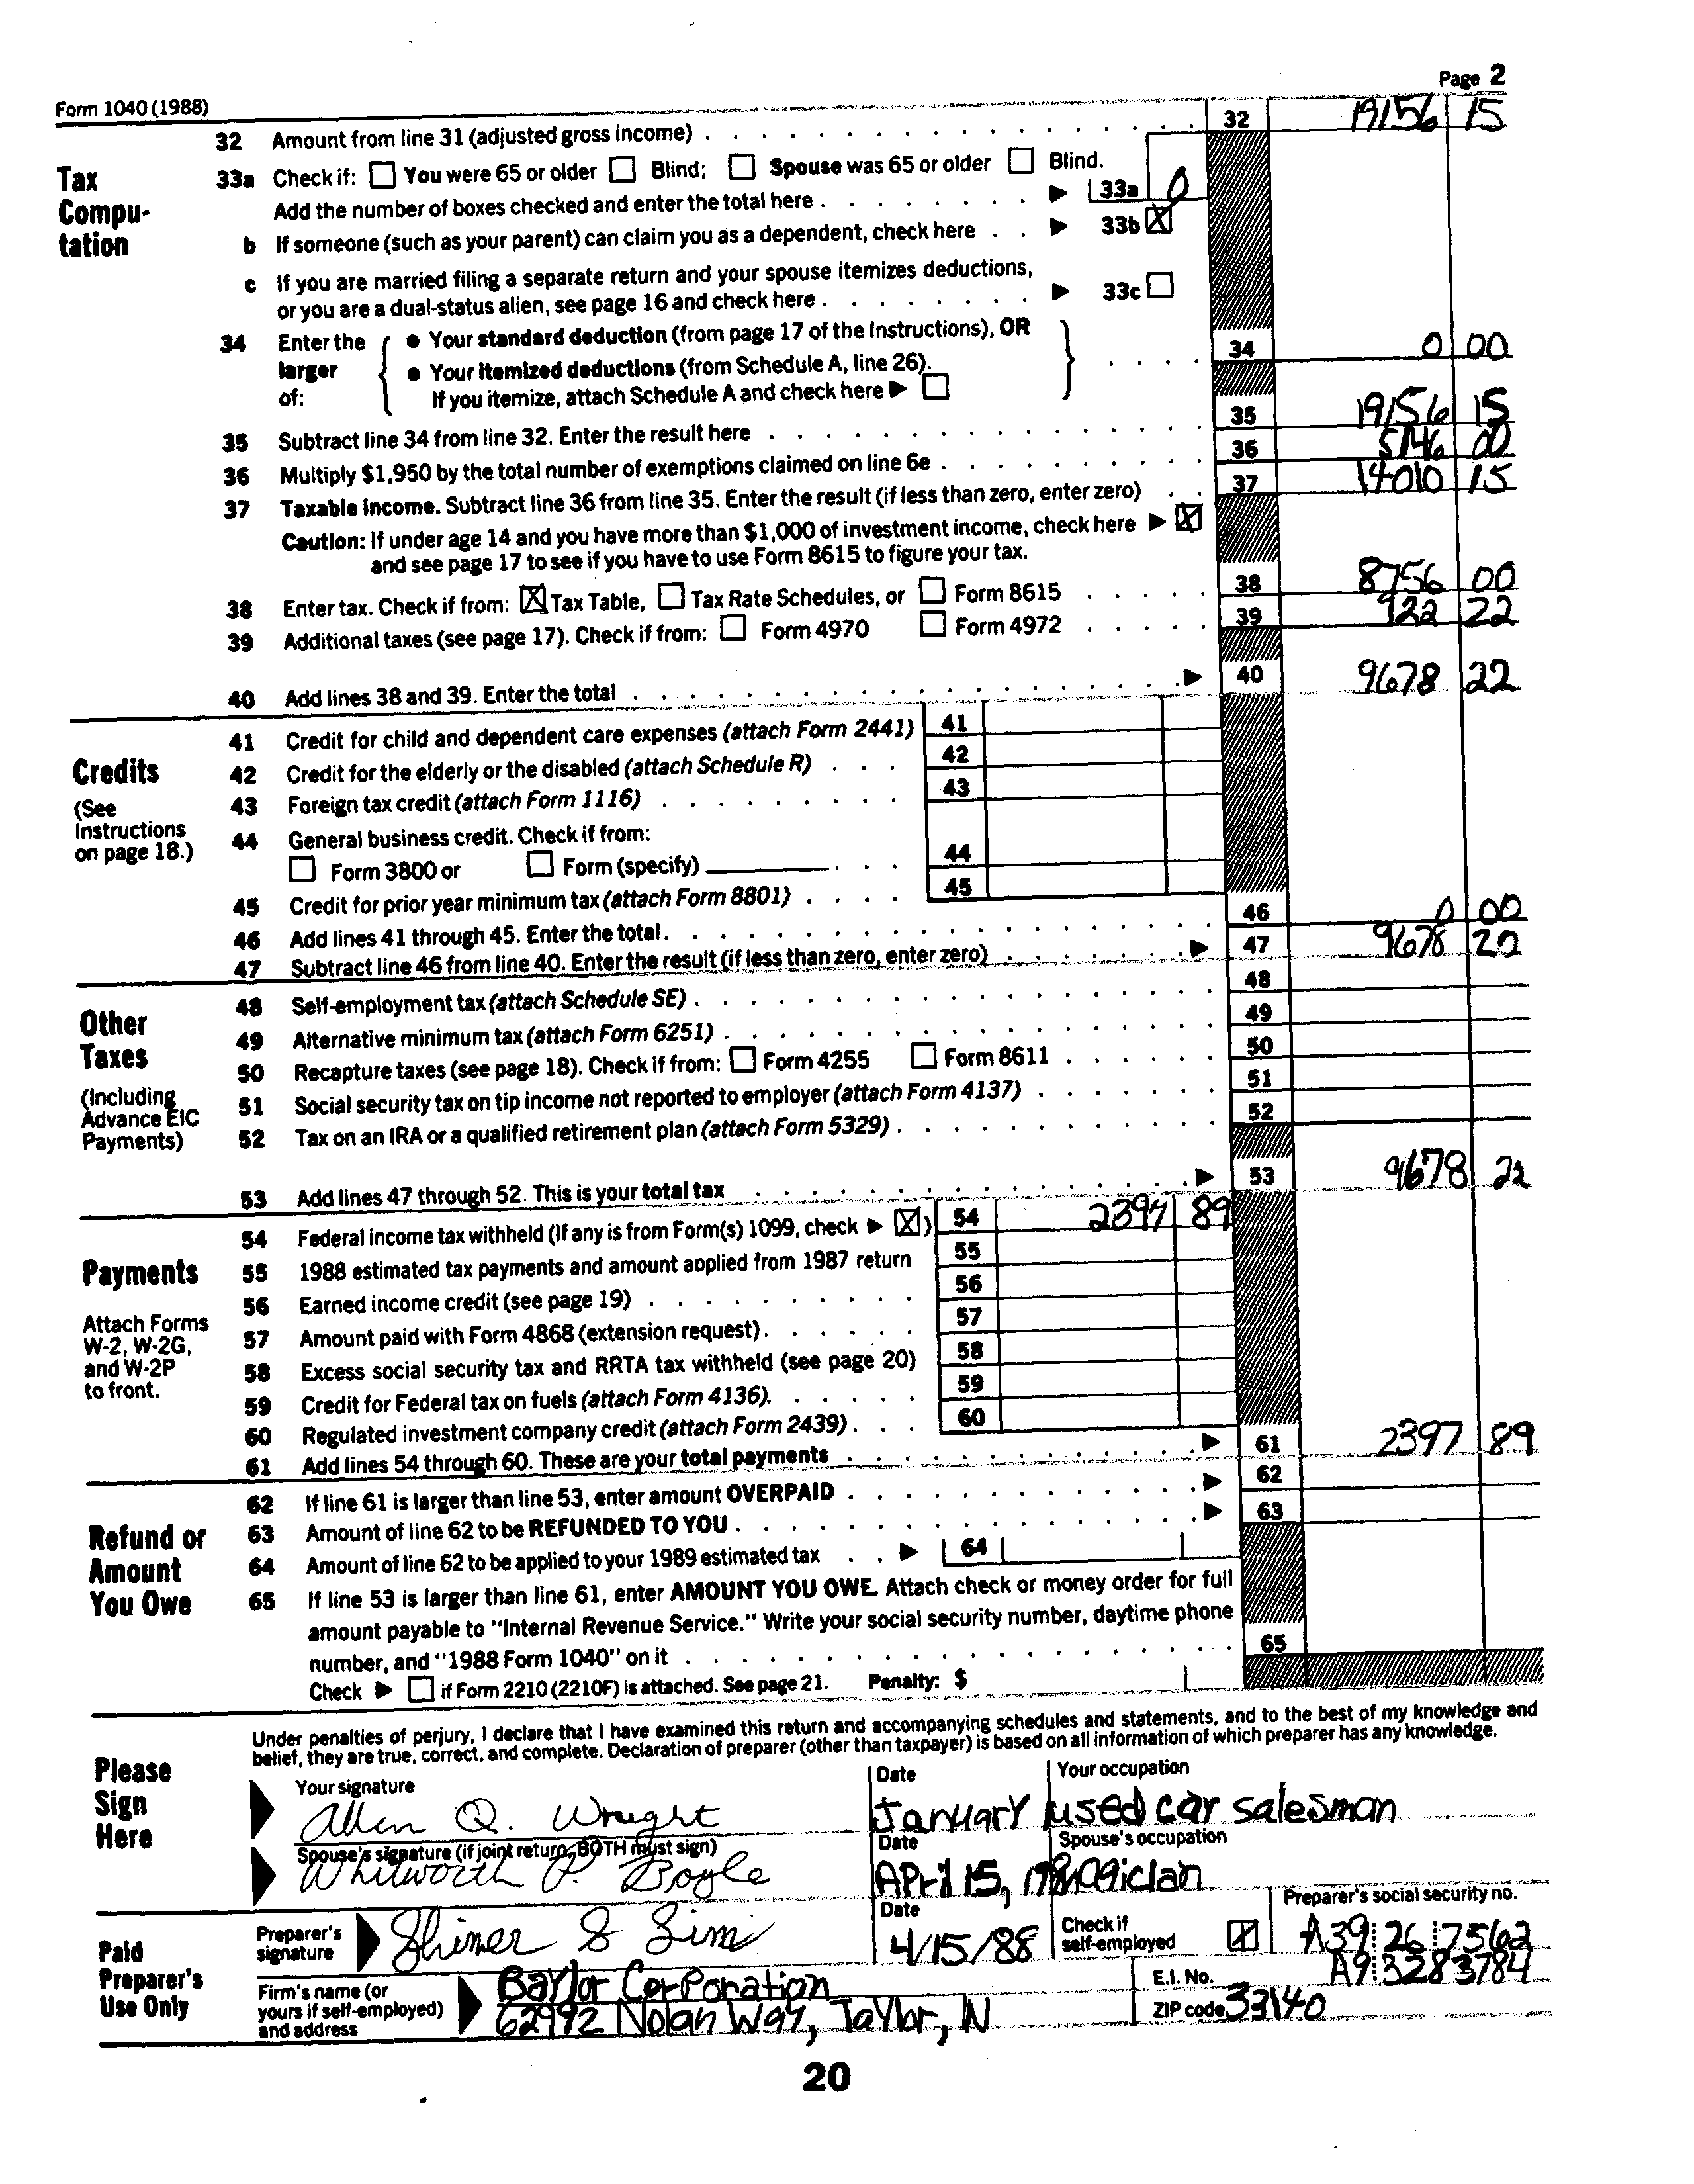 Page 2
Form 1040 (1988)
32 Amount from line 31 (adjusted gross income) 32 19156 15
Tax Compu-tation
33a Check if: You were 65 or older Blind; Spouse was 65 or older Blind.
Add the number of boxes checked and enter the total here 33a 0
b If someone (such as your parent) can claim you as a dependent, check here 33b X
c If you are married filing a separate return and your spouse itemizes deductions,
or you are a dual-status alien, see page 16 and check here 33c
34 Enter the larger of:
● Your standard deduction (from page 17 of the Instructions), OR
● Your itemized deductions (from Schedule A, line 26).
If you itemize, attach Schedule A and check here
34 0 00
35 Subtract line 34 from line 32. Enter the result here 35 19156 15
36 Multiply $1,950 by the total number of exemptions claimed on line 6e 36 5146 00
37 Taxable income. Subtract line 36 from line 35. Enter the result (if less than zero, enter zero) 37 14010 15
Caution: If under age 14 and you have more than $1,000 of investment income, check here X
and see page 17 to see if you have to use Form 8615 to figure your tax.
38 Enter tax. Check if from: X Tax Table, Tax Rate Schedules, or Form 8615 38 8756 00
39 Additional taxes (see page 17). Check if from: Form 4970 Form 4972 39 922 22
40 Add lines 38 and 39. Enter the total 40 9678 22
Credits
(See Instructions on page 18.)
41 Credit for child and dependent care expenses (attach Form 2441) 41
42 Credit for the elderly or the disabled (attach Schedule R) 42
43 Foreign tax credit (attach Form 1116) 43
44 General business credit. Check if from:
Form 3800 or Form (specify) 44
45 Credit for prior year minimum tax (attach Form 8801) 45
46 Add lines 41 through 45. Enter the total. 46 0 00
47 Subtract line 46 from line 40. Enter the result (if less than zero, enter zero) 47 9678 22
Other Taxes
(Including Advance EIC Payments)
48 Self-employment tax (attach Schedule SE) 48
49 Alternative minimum tax (attach Form 6251) 49
50 Recapture taxes (see page 18). Check if from: Form 4255 Form 8611 50
51 Social security tax on tip income not reported to employer (attach Form 4137) 51
52 Tax on an IRA or a qualified retirement plan (attach Form 5329) 52
53 Add lines 47 through 52. This is your total tax 53 9678 22
Payments
Attach Forms W-2, W-2G, and W-2P to front.
54 Federal income tax withheld (If any is from Form(s) 1099, check X) 54 2397 89
55 1988 estimated tax payments and amount applied from 1987 return 55
56 Earned income credit (see page 19) 56
57 Amount paid with Form 4868 (extension request) 57
58 Excess social security tax and RRTA tax withheld (see page 20) 58
59 Credit for Federal tax on fuels (attach Form 4136) 59
60 Regulated investment company credit (attach Form 2439) 60
61 Add lines 54 through 60. These are your total payments 61 2397 89
Refund or Amount You Owe
62 If line 61 is larger than line 53, enter amount OVERPAID 62
63 Amount of line 62 to be REFUNDED TO YOU 63
64 Amount of line 62 to be applied to your 1989 estimated tax 64
65 If line 53 is larger than line 61, enter AMOUNT YOU OWE. Attach check or money order for full
amount payable to "Internal Revenue Service." Write your social security number, daytime phone
number, and "1988 Form 1040" on it 65
Check if Form 2210 (2210F) is attached. See page 21. Penalty: $
Please Sign Here
Under penalties of perjury, I declare that I have examined this return and accompanying schedules and statements, and to the best of my knowledge and
belief, they are true, correct, and complete. Declaration of preparer (other than taxpayer) is based on all information of which preparer has any knowledge.
Your signature Date Your occupation
Allen Q. Wright January used car salesman
Spouse's signature (if joint return, BOTH must sign) Date Spouse's occupation
Whitworth P. Boyle April 15, magician
Paid Preparer's Use Only
Preparer's signature Shimer S Sims Date 4/15/88 Check if self-employed X Preparer's social security no. A39 26 7562
Firm's name (or yours if self-employed) and address
Baylor Corporation E.I. No. A9 3283784
62992 Nolan Way, Taylor, IN ZIP code 33140
20